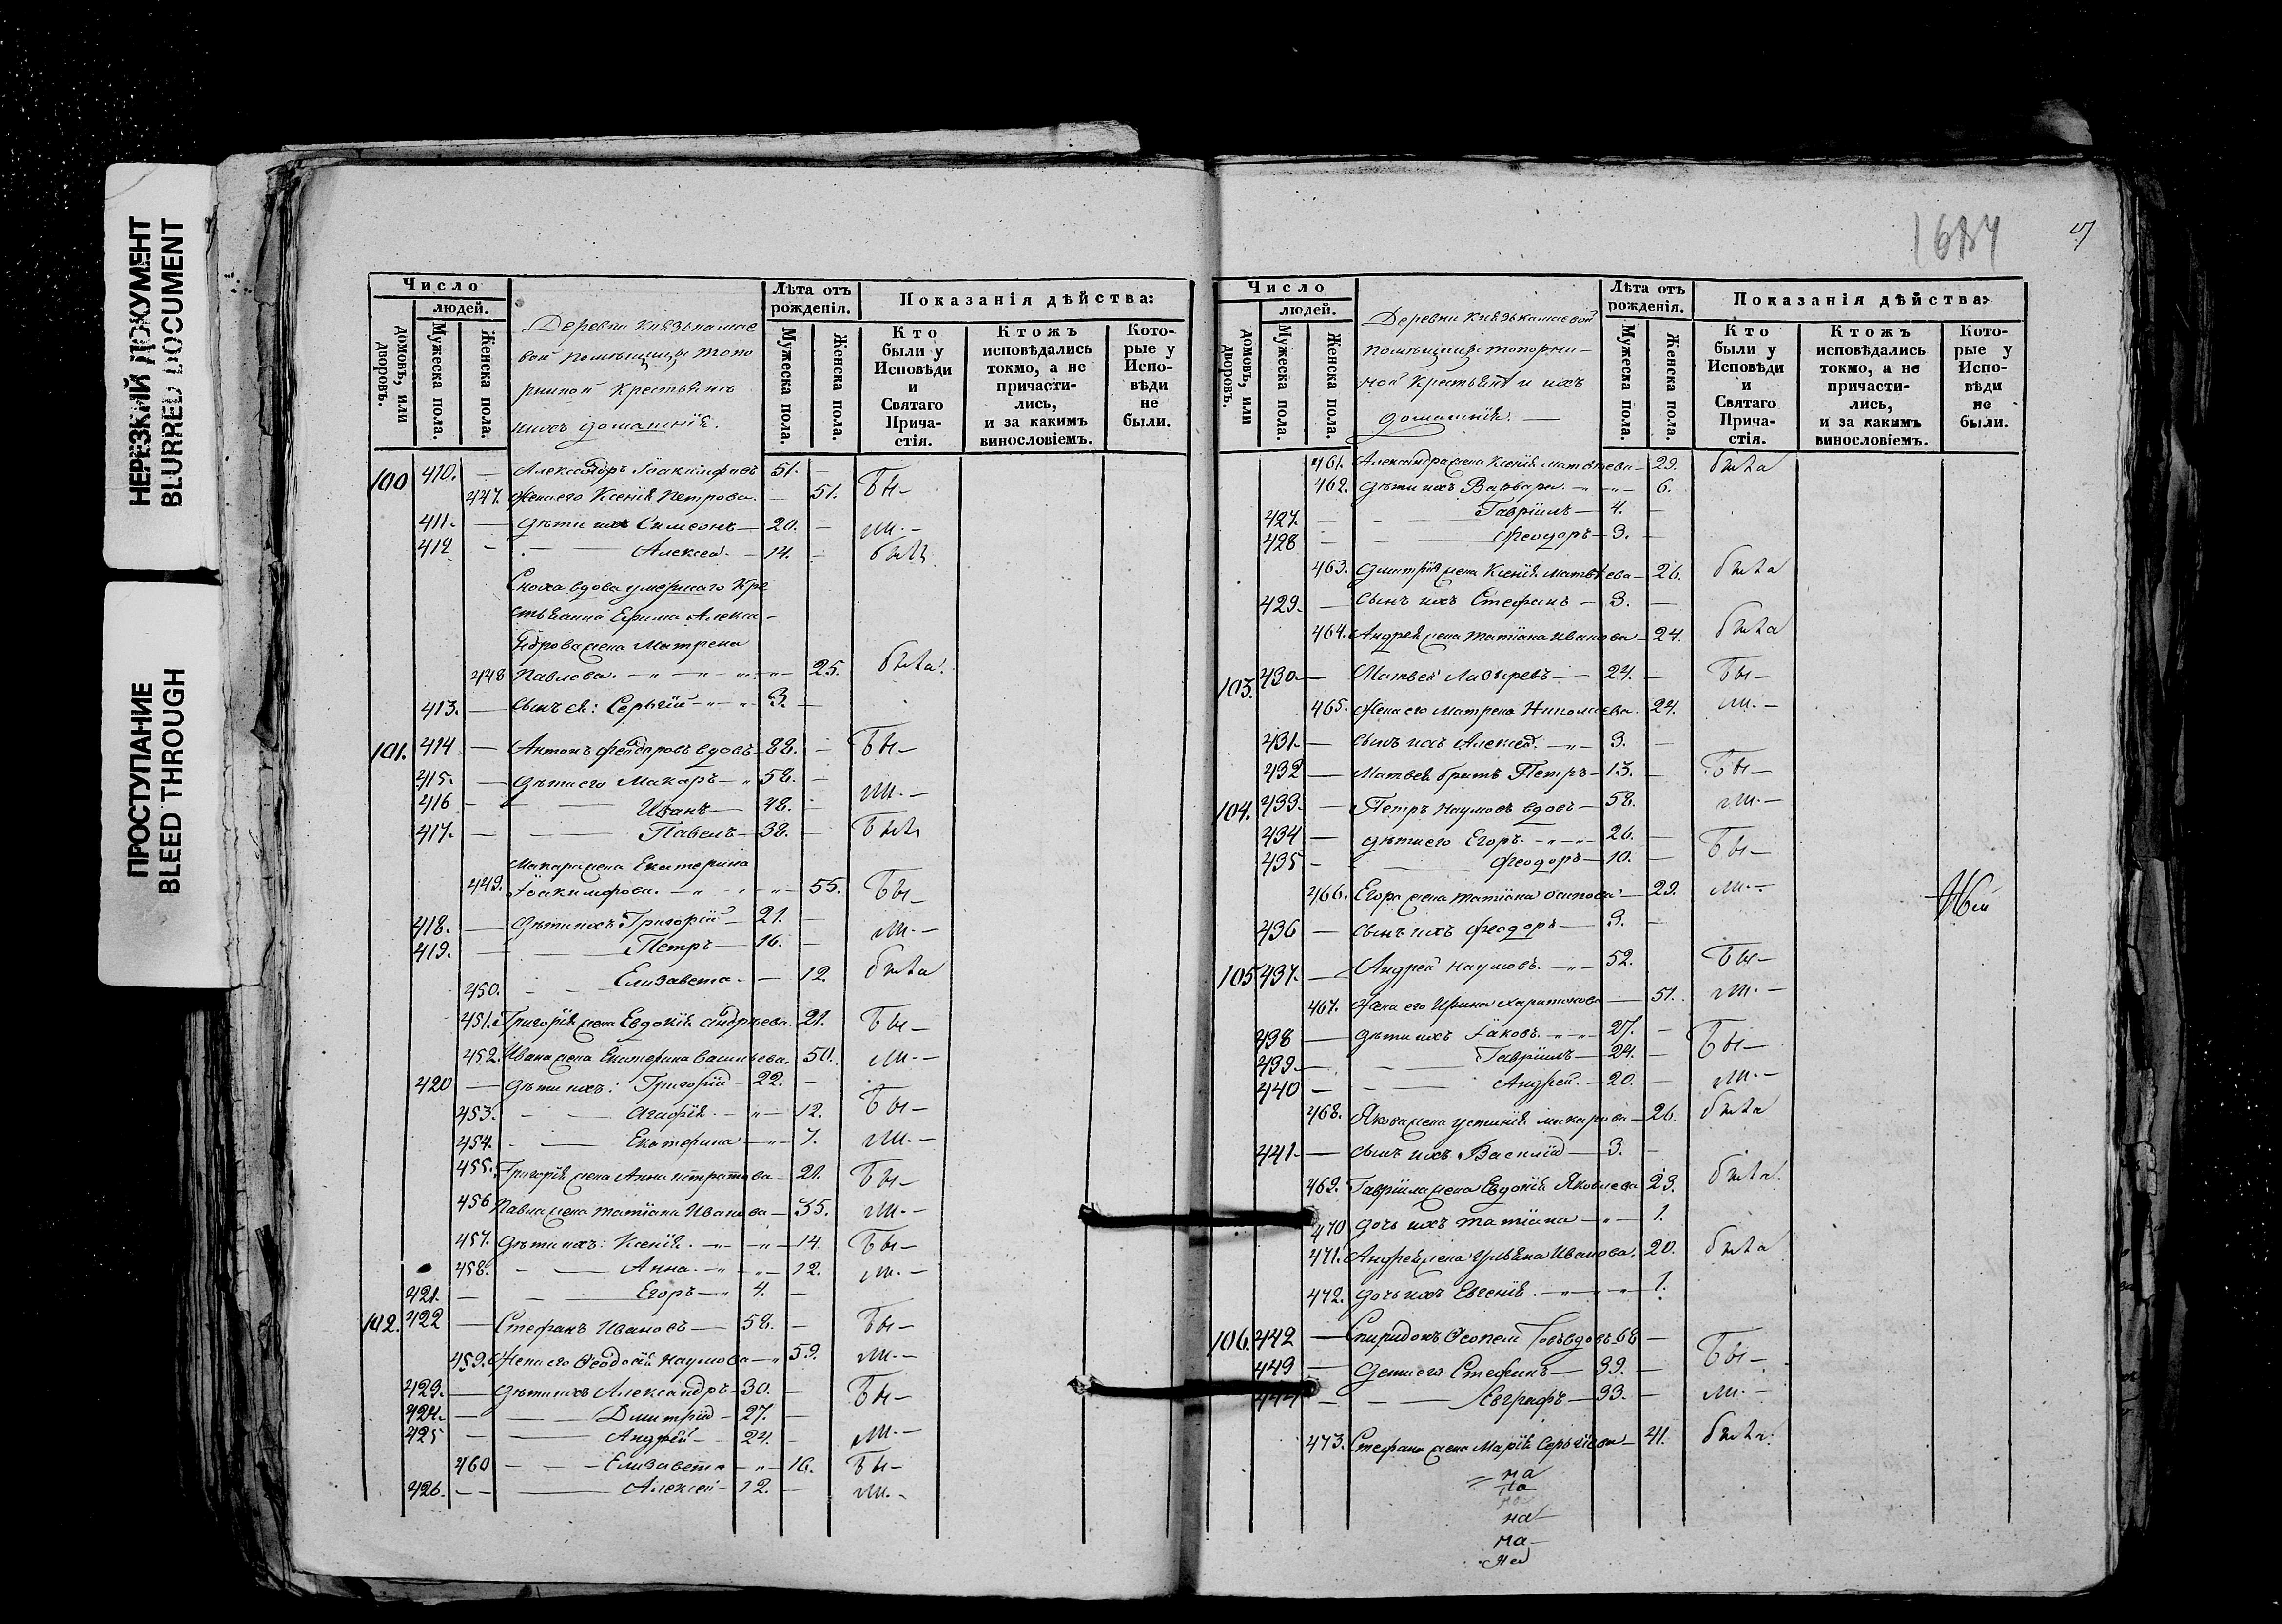 НЕРЕЗКИЙ ДОКУМЕНТ
BLURRED DOCUMENT
ПРОСТУПАНИЕ
BLEED THROUGH
Число
людей.
домовъ, или дворовъ.
Мужеска пола.
Женска пола.
Деревни Князькамае
вой помѣщицы Топо
рниной крестьяне
ихъ домашнiя.
Лѣта отъ рожденiя.
Мужеска пола.
Женска пола.
Показанiя дѣйства:
Кто были у Исповѣди и Святаго Прича-стiя.
Ктожъ исповѣдались токмо, а не причасти-лись, и за какимъ винословiемъ.
Кото-рые у Испо-вѣди не были.
100 410. — Александръ Iоакимфовъ 51. —
447. Жена его Ксенiя Петрова. — 51. Бы—
411. — Дѣти ихъ Симеонъ — 20. — ли. —
412 — Алексей. — 14. — былъ
Сноха вдова умершаго Кре
стьянина Ефима Алекса —
ндрова жена Матрена
448 Павлова. — 25. была.
413. — Сынъ ея: Сергiй — 3. —
101. 414 — Антонъ Феодоровъ вдовъ — 88. — Бы—
415. — Дѣти его Макаръ — 58. —
416 — Иванъ — 48. — ли. —
417. — Павелъ — 38. — Былъ
Макара жена Екатерина
449. Iоакимфова. — 55. Бы—
418. — Дѣти ихъ Григорiй — 21. — ли. —
419. — Петръ — 16. —
450. — Елизавета — 12 была
451. Григорiя жена Евдокiя Андреева. 21. Бы—
452. Ивана жена Екатерина Васильева. 50. ли. —
420 — Дѣти ихъ: Григорiй — 22. —
453. — Агафiя. — 12. Бы—
454. — Екатерина — 7. ли. —
455. Григорiя жена Анна — 21. Бы—
456 Павла жена Татiана Иванова — 35. ли. —
457. Дѣти ихъ: Ксенiя. — 14. Бы—
458. — Анна. — 12. ли. —
421. — Егоръ — 4. —
102. 422 — Стефанъ Ивановъ — 58. — Бы—
459. Жена его Ѳеодосiя Наумова — 59. ли. —
423. — Дѣти ихъ Александръ — 30. — Бы—
424. — Дмитрiй — 27. —
425 — Андрей — 24. — ли. —
460 — Елизавета — 16. Бы—
426. — Алексей — 12. — ли. —
Число
людей.
домовъ, или дворовъ.
Мужеска пола.
Женска пола.
Деревни Князькамаевой
помѣщицы Топорни—
ной крестьяне и ихъ
домашнiя. —
Лѣта отъ рожденiя.
Мужеска пола.
Женска пола.
Показанiя дѣйства:
Кто были у Исповѣди и Святаго Прича-стiя.
Ктожъ исповѣдались токмо, а не причасти-лись, и за какимъ винословiемъ.
Кото-рые у Испо-вѣди не были.
461. Александра жена Ксенiя Матвѣева — 29. была
462. Дѣти ихъ Варвара. — 6.
427. — Гаврiилъ — 4. —
428 — Феодоръ — 3. —
463. Дмитрiя жена Ксенiя Матвѣева — 26. была
429. — Сынъ ихъ Стефанъ — 3. —
464. Андрея жена Татiана Иванова — 24. была
103. 430 — Матвей Лазыревъ — 24. — Бы—
465. Жена его Матрена Николаева. 24. ли. —
431 — Сынъ ихъ Алексей. — 3. —
432 — Матвея братъ Петръ — 13. — Бы—
104. 433. — Петръ Наумовъ вдовъ — 58. ли. —
434 — Дѣти его Егоръ. — 26. —
435 — Феодоръ — 10. — Бы—
466. Егора жена Татiана Осипова — 29. ли. —
436 — Сынъ ихъ Феодоръ — 3. —
105 437. — Андрей Наумовъ. — 52. Бы—
467. Жена его Ирина Харитонова — 51. ли. —
438 — Дѣти ихъ Iаковъ. — 27. —
439 — Гаврiилъ — 24. — Бы—
440 — Андрей. — 20. — ли. —
468. Якова жена Устинiя Макарова — 26. была
441 — Сынъ ихъ Василiй — 3. —
469. Гаврiила жена Евдокiя Яковлева 23. была.
470 Дочь ихъ Татiана — 1.
471. Андрея жена Ульяна Иванова. 20. была
472. Дочь ихъ Евгенiя. — 1.
106. 442 — Спиридонъ вдовъ 68 —
443 — Дети его Стефанъ — 39. — Бы—
444 — Евграфъ — 33. — ли. —
473. Стефана жена Марiя Сергiева — 41. была.
на
на
на
на